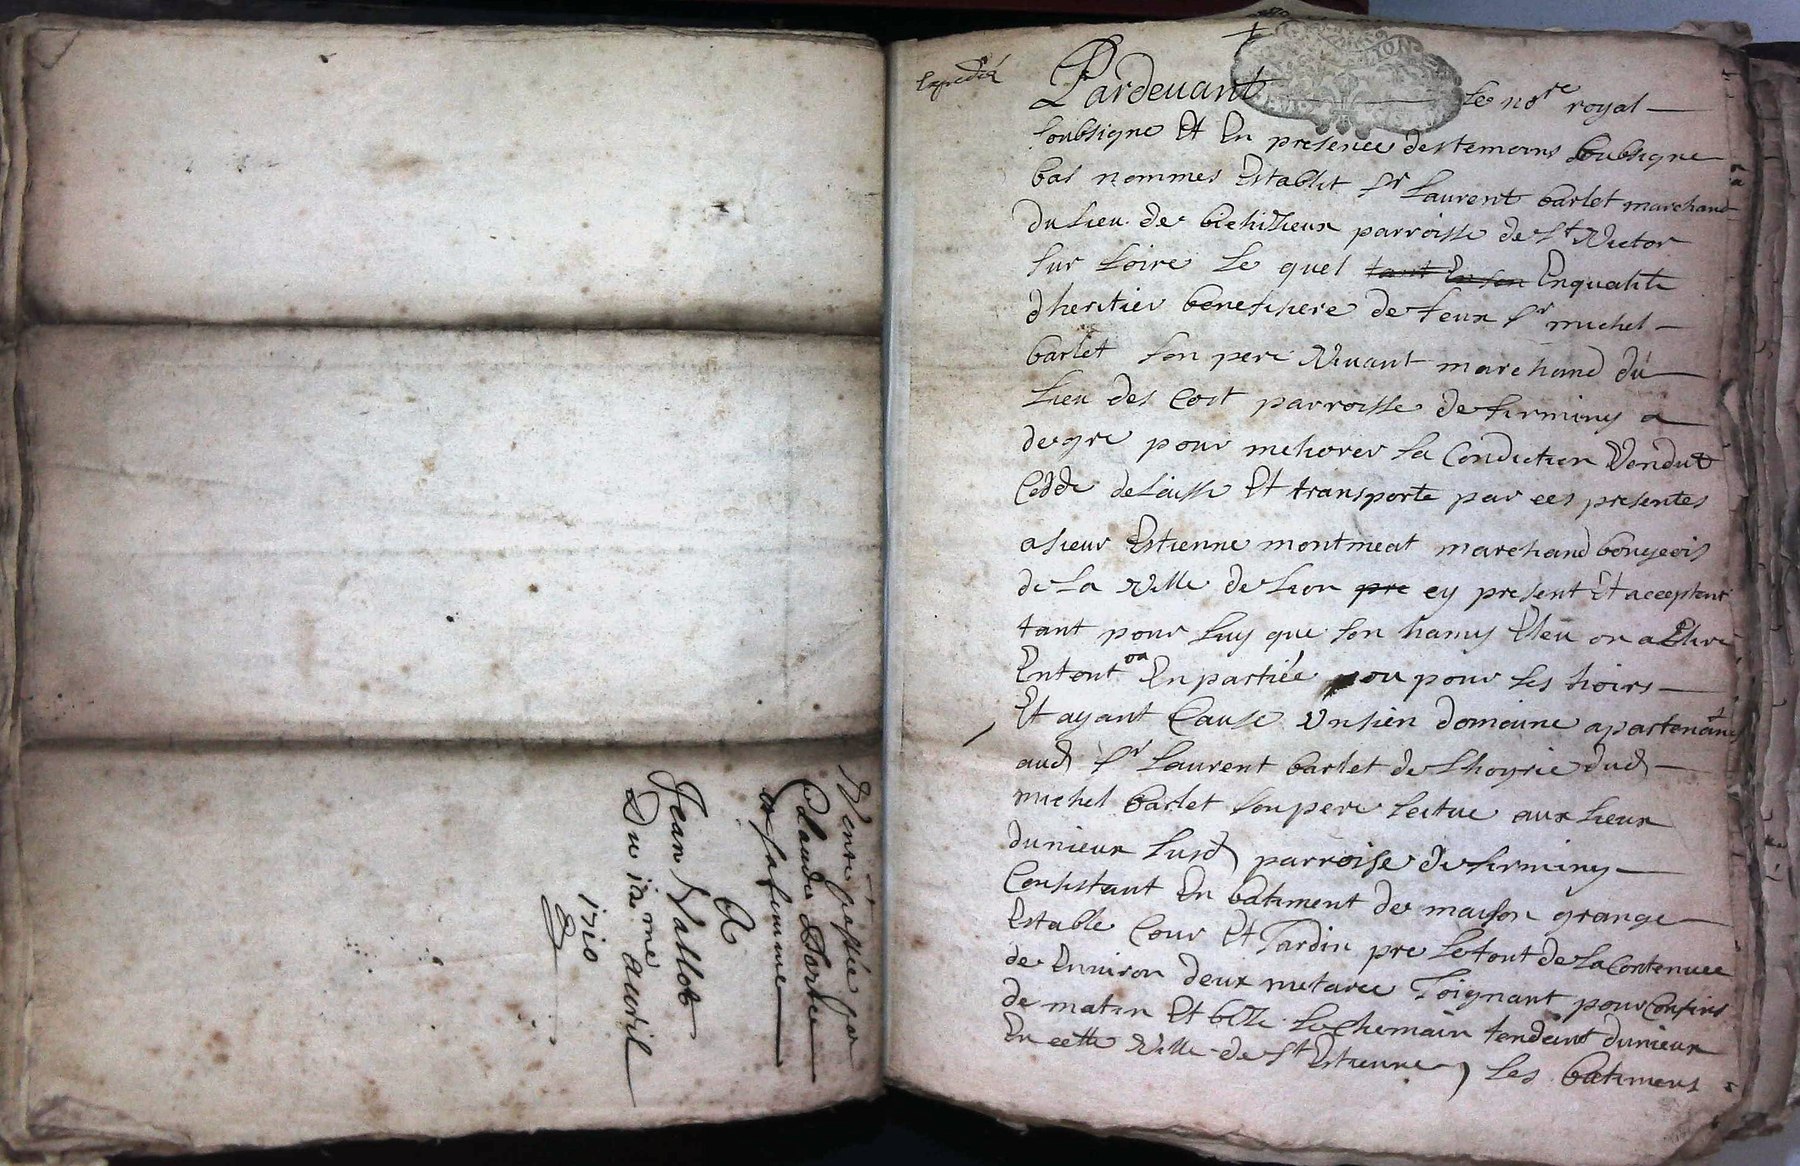 Vente passée par
Claude
et sa femme
A
Jean Vallot
Du 12me avril
1710
Expedié
Pardevant le nore royal
soubsigne Et En presence des temoins soubsigne
bas nommes Establit sr Laurent barlet marchand
du lieu de bichizieux parroisse de st Victor
sur Loire Le quel tant En son Enqualite
dheritier benefisiere de feux sr michel
barlet son pere Vivant marchand du
Lieu des Cost parroisse de firminy a
de gre pour meliorer sa Condiction Vendut
Cedde delaisse Et transporte par ces presentes
a sieur Estienne montmeat marchand bougeois
de La Ville de Lion pre cy present Et acceptant
tant pour luy que son hamy Eleu ou a Elire
Entout ou En partiée ou pour les hoirs
Et ayant Cause Un sien domaine apartenant
aud sr Laurent barlet de Lhoyrie dud
michel barlet son pere scitue aux Lieux
dunieux susd parroise de firminy
Consistant En batiment de maison grange
Estable Cour Et Jardin pre Le tout de La Contenuee
de Environ deux metaree Joignant pour Confins
de matin Et bize Le chemain tendant dunieux
En cette Ville de st Estienne, Les batimens